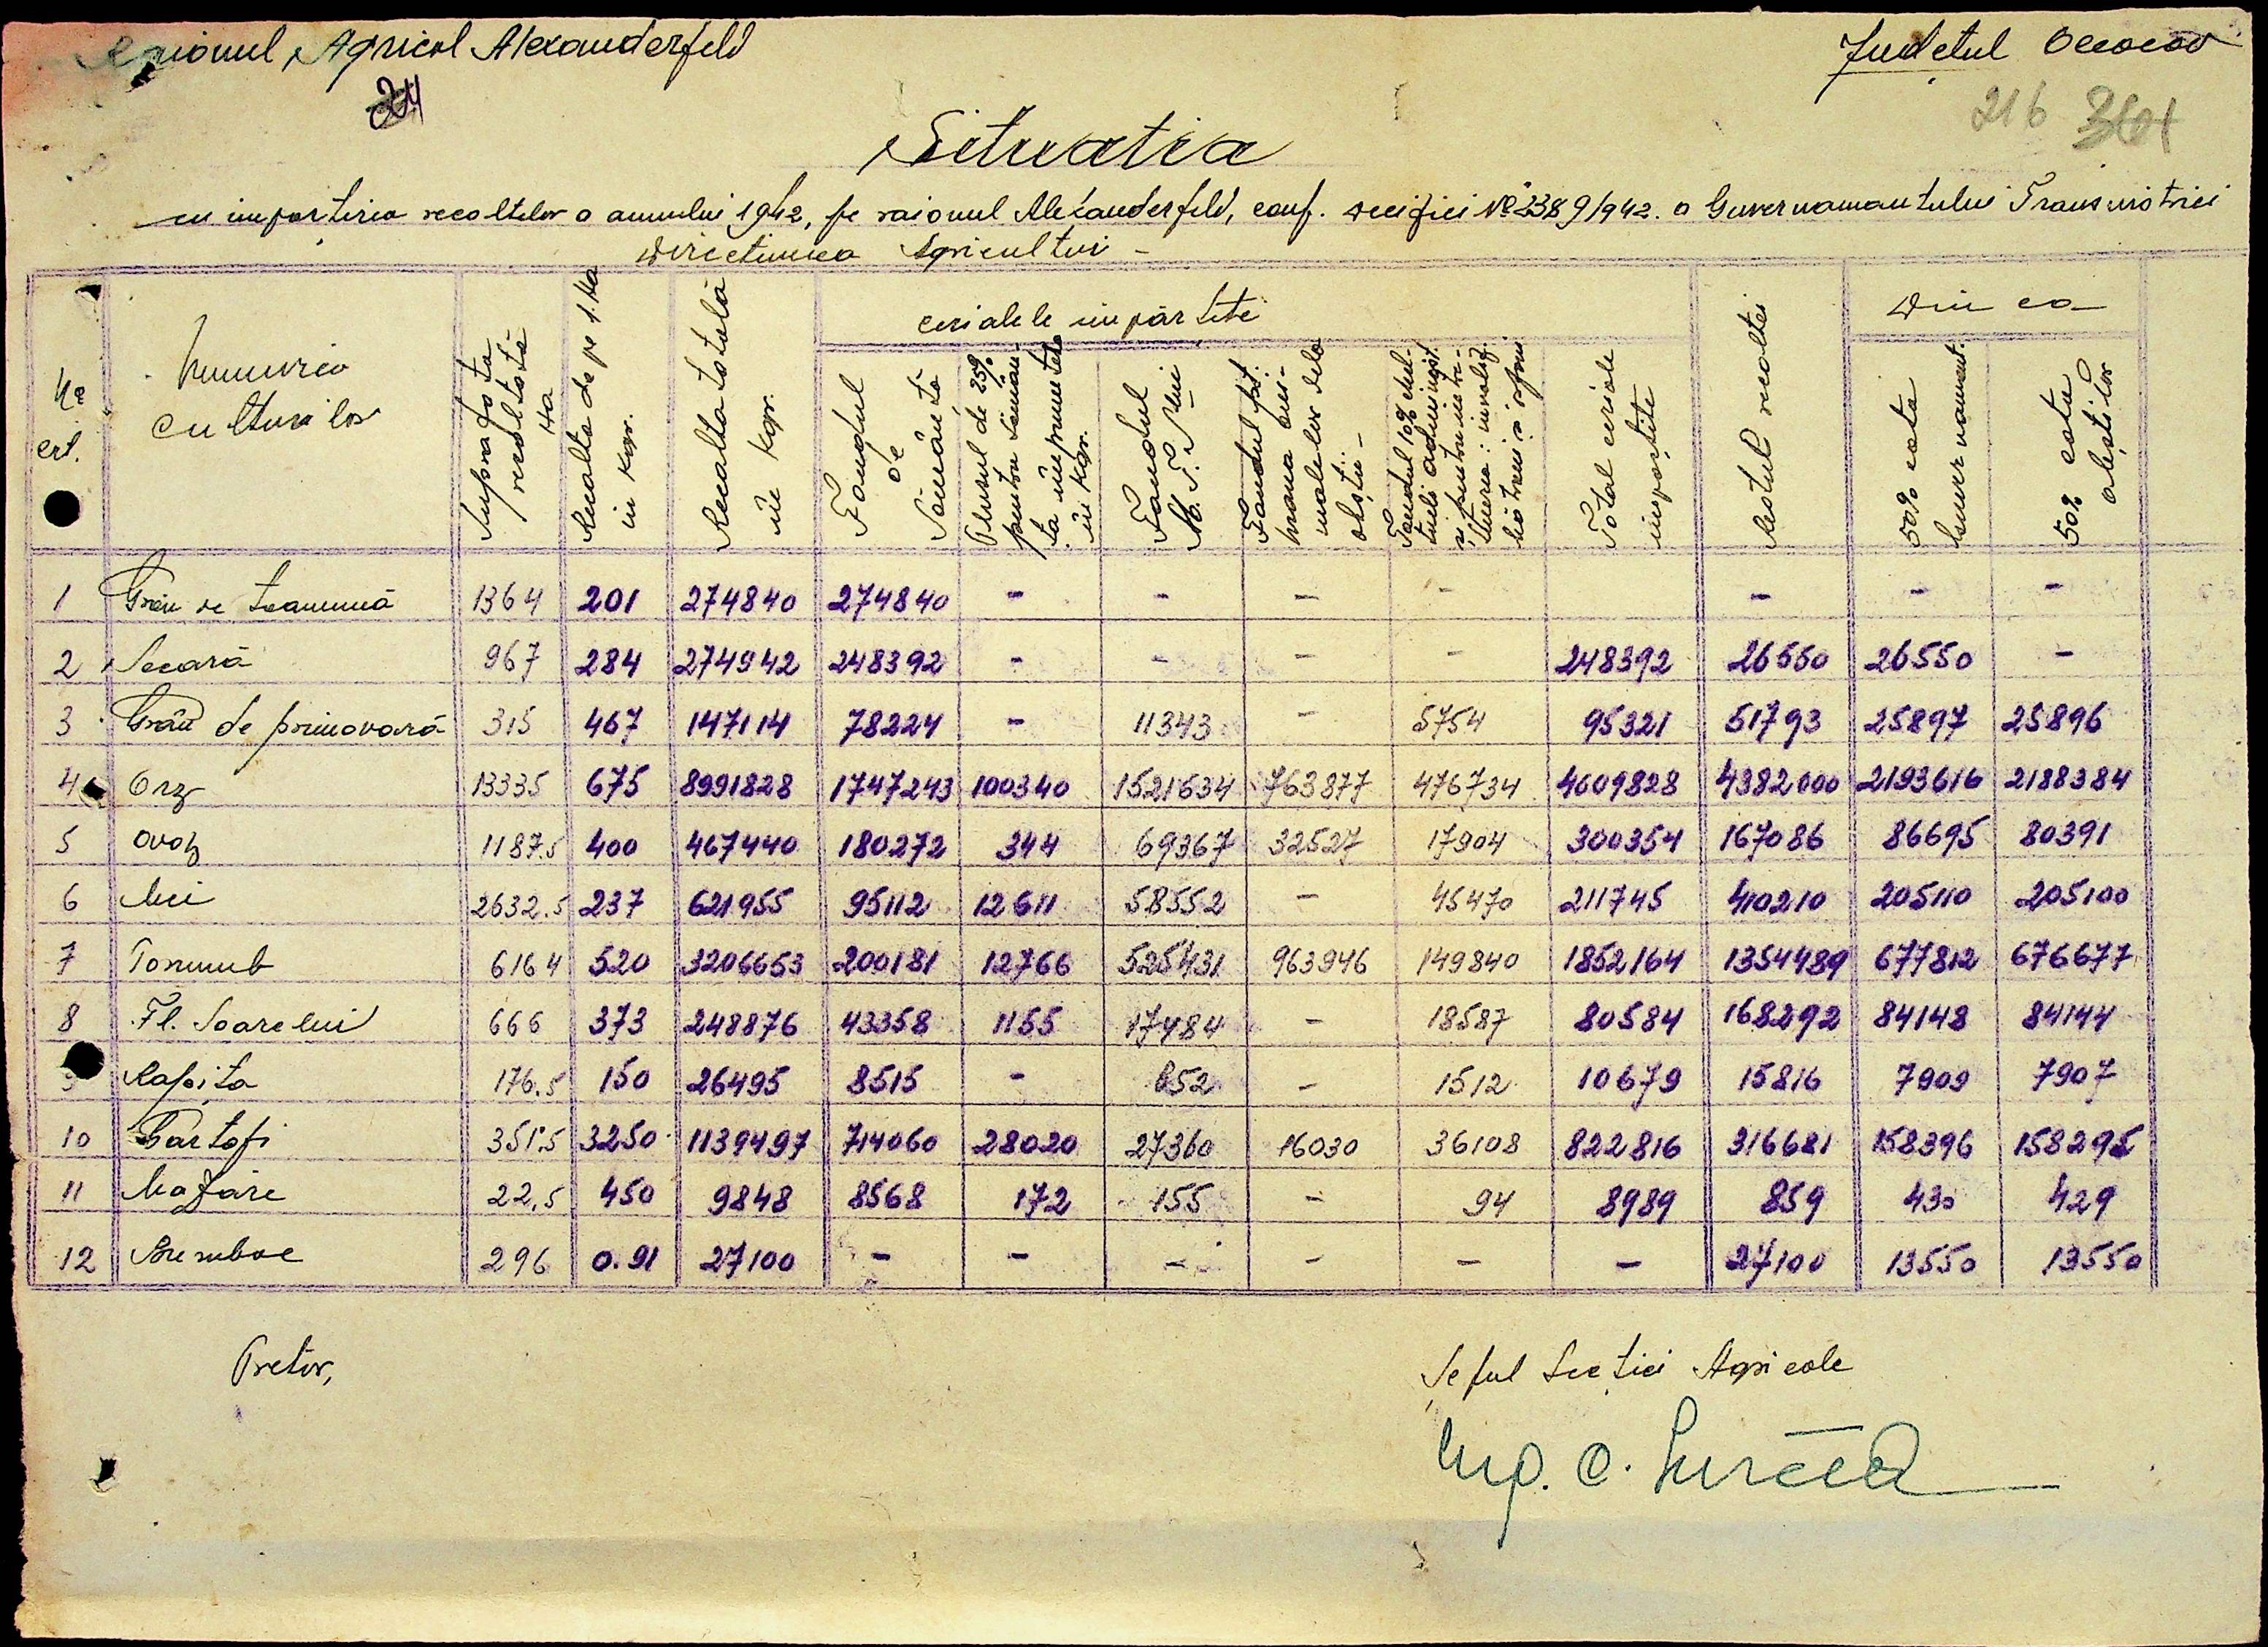 Raionul Agricol Alexanderfeld
Judetul Oceacov
24
216
Situatia
cu impartirea recoltelor a anului 1942, pe raionul Alexanderfeld, conf. decifiei № 2389/942. a Guvernamantului Transnistriei
Directiunea Agriculturi -
№ crt. | Numirea culturilor | Suprafata recoltata Ha | Recolta de pe 1. Ha in Kgr. | Recolta totală in Kgr. | cerialele impărtite | Restul recoltei | Din ea
Fondul de Sămânță | Plusul de 25% pentru sământa imprumutata in Kgr. | Fondul M.T.S.ului | Fondul pt. hrana animalelor dela obștii - | Fondul 10% | Total ceriale impărtite | 50% cota Guvernamant. | 50% cota obeștilor
1 Grâu de toamnă 1364 201 274840 274840 - - - - - - -
2 Secară 967 284 274942 248392 - - - - 248392 26550 26550 -
3 Grâu de primavară 315 467 147114 78224 - 11343 - 5754 95321 51793 25897 25896
4 Orz 13335 675 8991828 1747243 100340 1521634 763877 476734 4609828 4382000 2193616 2188384
5 ovăz 1187.5 400 467440 180272 344 69367 32527 17904 300354 167086 86695 80391
6 Mei 2632.5 237 621955 95112 12611 58552 - 45470 211745 410210 205110 205100
7 Porumb 6164 520 3206653 200181 12766 525431 963946 149840 1852164 1354489 677812 676677
8 Fl. Soarelui 666 373 248876 43358 1155 17484 - 18587 80584 168292 84148 84144
9 Rapița 176.5 150 26495 8515 - 652 - 1512 10679 15816 7909 7907
10 Cartofi 351.5 3250 1139497 714060 28020 27360 16030 36108 822816 316681 158396 158295
11 Mazăre 22.5 450 9848 8568 172 155 - 94 8989 859 430 429
12 Bumbac 296 0.91 27100 - - - - - - 27100 13550 13550
Pretor,
Șeful Secției Agricole
Ing. C.